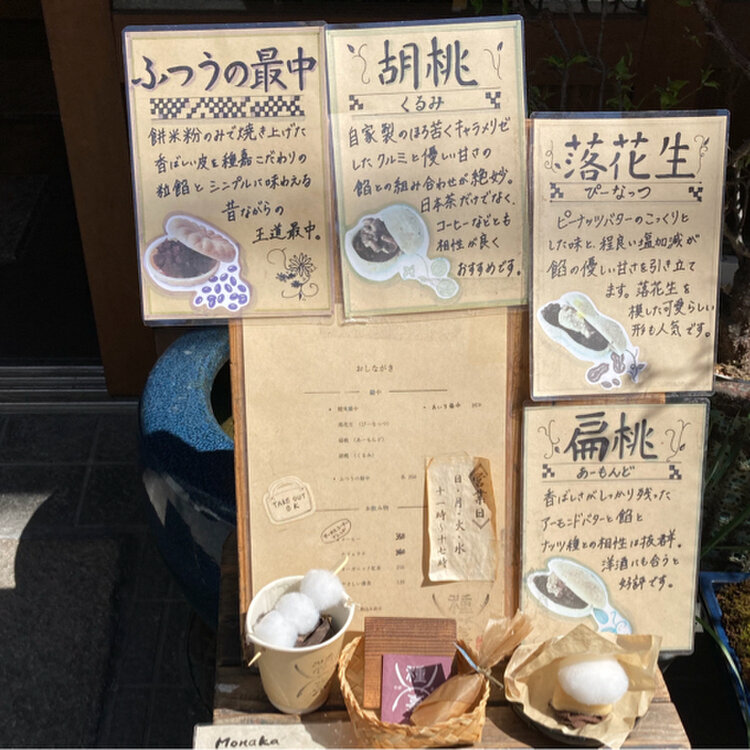 ふつうの最中
餅米粉のみで焼き上げた
香ばしい皮を種嘉こだわりの
粒餡とシンプルに味わえる
昔ながらの
王道最中。
胡桃
くるみ
自家製のほろ苦くキャラメリゼ
したクルミと優しい甘さの
餡との組み合わせが絶妙。
日本茶だけでなく、
コーヒーなどとも
相性が良く
おすすめです。
落花生
ぴーなっつ
ピーナッツバターのこっくりと
した味と、程良い塩加減が
餡の優しい甘さを引き立て
ます。落花生を
模した可愛らしい
形も人気です。
扁桃
あーもんど
香ばしさがしっかり残った
アーモンドバターと餡と
ナッツ種との相性は抜群。
洋酒にも合うと
好評です。
おしながき
最中
落花生(ぴーなっつ)
扁桃(あーもんど)
胡桃(くるみ)
・ふつうの最中
TAKE OUT
OK
お飲み物
〈営業日〉
日・月・火・水
十一時〜十七時
Monaka